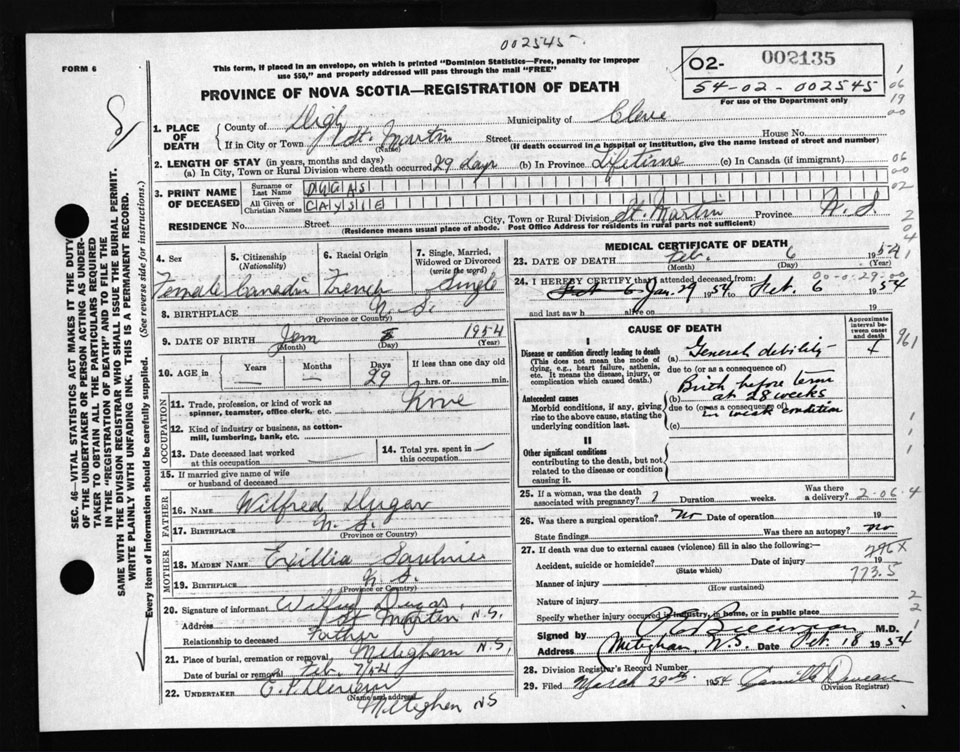 002545
FORM 6
This form, if placed in an envelope, on which is printed "Dominion Statistics—Free, penalty for improper
use $50," and properly addressed will pass through the mail "FREE"
O2- 002135
54-02-002545
For use of the Department only
PROVINCE OF NOVA SCOTIA—REGISTRATION OF DEATH
1. PLACE OF DEATH
County of Digby Municipality of Clare
If in City or Town St. Martin (Name) Street House No.
(If death occurred in a hospital or institution, give the name instead of street and number)
2. LENGTH OF STAY (in years, months and days)
(a) In City, Town or Rural Division where death occurred 29 days (b) In Province Lifetime (c) In Canada (if immigrant)
3. PRINT NAME OF DECEASED
Surname or Last Name DUGAS
All Given or Christian Names CAYSIE
RESIDENCE No. Street City, Town or Rural Division St. Martin Province N.S.
(Residence means usual place of abode. Post Office Address for residents in rural parts not sufficient)
4. Sex
Female
5. Citizenship (Nationality)
Canadin
6. Racial Origin
French
7. Single, Married, Widowed or Divorced (write the word)
Single
8. BIRTHPLACE N.S.
(Province or Country)
9. DATE OF BIRTH Jan 1954
(Month) (Day) (Year)
10. AGE in Years Months Days 29 If less than one day old hrs. or min.
OCCUPATION
11. Trade, profession, or kind of work as
spinner, teamster, office clerk, etc.
12. Kind of industry or business, as cotton-
mill, lumbering, bank, etc.
13. Date deceased last worked
at this occupation
14. Total yrs. spent in
this occupation
15. If married give name of wife
or husband of deceased
FATHER
16. NAME Wilfred Dugas
17. BIRTHPLACE N.S.
(Province or Country)
MOTHER
18. MAIDEN NAME Exillia Saulnier
19. BIRTHPLACE N.S.
(Province or Country)
20. Signature of informant Wilfred Dugas
Address St Martin N.S.
Relationship to deceased Father
21. Place of burial, cremation or removal Meteghen N.S.
Date of burial or removal Feb. 7/54
22. UNDERTAKER
(Name and address)
Meteghen NS
MEDICAL CERTIFICATE OF DEATH
23. DATE OF DEATH Feb. 6 1954
(Month) (Day)
00-0-29-00
24. I HEREBY CERTIFY that I attended deceased from
Jan 29 1954 to Feb. 6 1954
and last saw h alive on 19
CAUSE OF DEATH
Approximate interval between onset and death
I
Disease or condition directly leading to death
(This does not mean the mode of
dying, e.g., heart failure, asthenia,
etc. It means the disease, injury, or
complication which caused death.)
(a) General debility
due to (or as a consequence of)
Antecedent causes
Morbid conditions, if any, giving
rise to the above cause, stating the
underlying condition last.
(b) Birth before term
at 28 weeks
due to (or as a consequence of)
in weak condition
(c)
II
Other significant conditions
contributing to the death, but not
related to the disease or condition
causing it.
25. If a woman, was the death
associated with pregnancy? Duration weeks. Was there a delivery? 2-06-4
26. Was there a surgical operation? No Date of operation 19
State findings Was there an autopsy? No
27. If death was due to external causes (violence) fill in also the following:—
Accident, suicide or homicide? (State which) Date of injury 19
776X
773.5
Manner of injury (How sustained)
Nature of injury
Specify whether injury occurred in industry, in home, or in public place
Signed by M.D.
Address Meteghan, N.S. Date Feb. 18 1954
28. Division Registrar's Record Number
29. Filed March 29th 1954 Camille
(Division Registrar)
SEC. 46—VITAL STATISTICS ACT MAKES IT THE DUTY
OF THE UNDERTAKER OR PERSON ACTING AS UNDER-
TAKER TO OBTAIN ALL THE PARTICULARS REQUIRED
IN THE "REGISTRATION OF DEATH" AND TO FILE THE
SAME WITH THE DIVISION REGISTRAR WHO SHALL ISSUE THE BURIAL PERMIT.
WRITE PLAINLY WITH UNFADING INK. THIS IS A PERMANENT RECORD.
Every item of information should be carefully supplied. (See reverse side for instructions.)